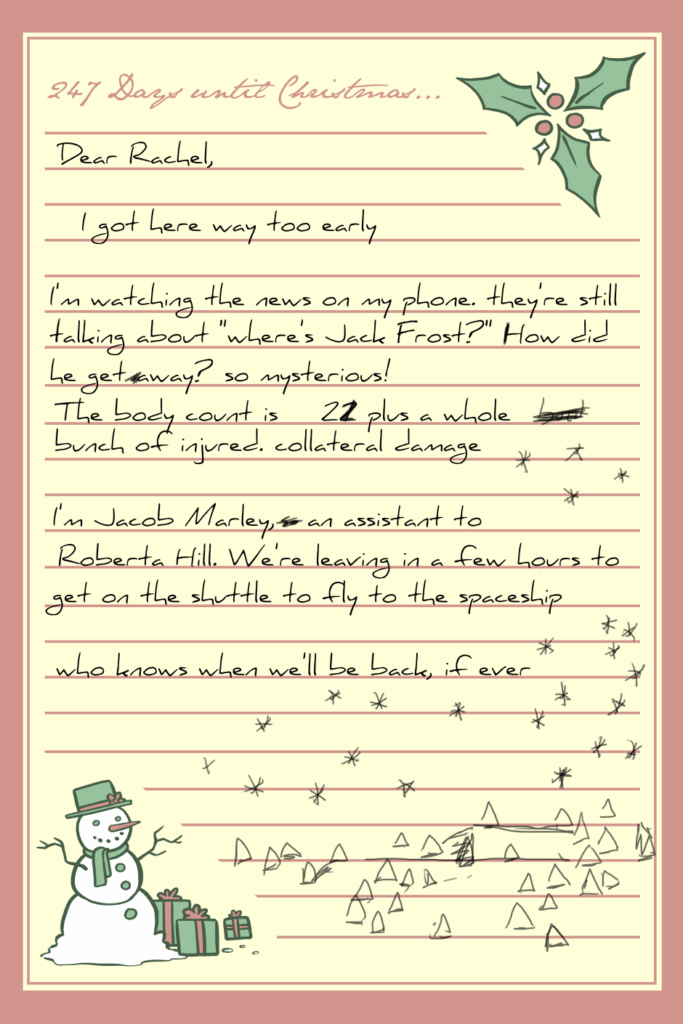 247 Days until Christmas...
Dear Rachel,
I got here way too early
I'm watching the news on my phone. they're still
talking about "where's Jack Frost?" How did
he get away? so mysterious!
The body count is 22 plus a whole
bunch of injured. collateral damage
I'm Jacob Marley, an assistant to
Roberta Hill. We're leaving in a few hours to
get on the shuttle to fly to the spaceship
who knows when we'll be back, if ever